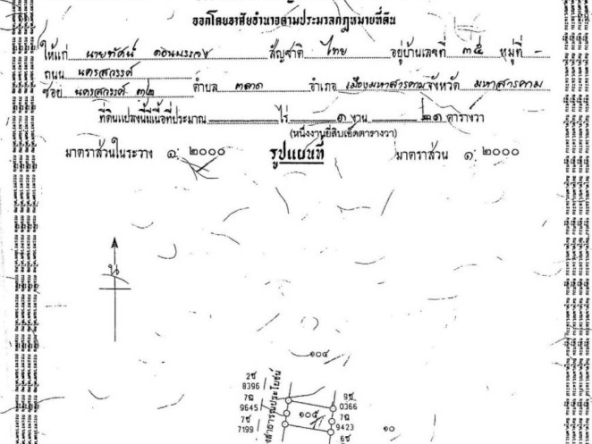 ออกโดยอาศัยอำนาจตามประมวลกฎหมายที่ดิน
ให้แก่ นายทัศน์ สัญชาติ ไทย อยู่บ้านเลขที่ ๓๕ หมู่ที่ -
ถนน นครสวรรค์
ซอย นครสวรรค์ ๓๒ ตำบล ตลาด อำเภอ เมืองมหาสารคาม จังหวัด มหาสารคาม
ที่ดินแปลงนี้มีเนื้อที่ประมาณ ไร่ ๑ งาน ๒๑ ตารางวา
(หนึ่งงานยี่สิบเอ็ดตารางวา)
มาตราส่วนในระวาง ๑: ๒๐๐๐ รูปแผนที่ มาตราส่วน ๑: ๒๐๐๐
น
๑๐๔
2ช
8396
7ฌ
9645
7ช
7199
สาธารณประโยชน์
๑๐๕
9ช
0366
7ฌ
9423
6ช
๑๐